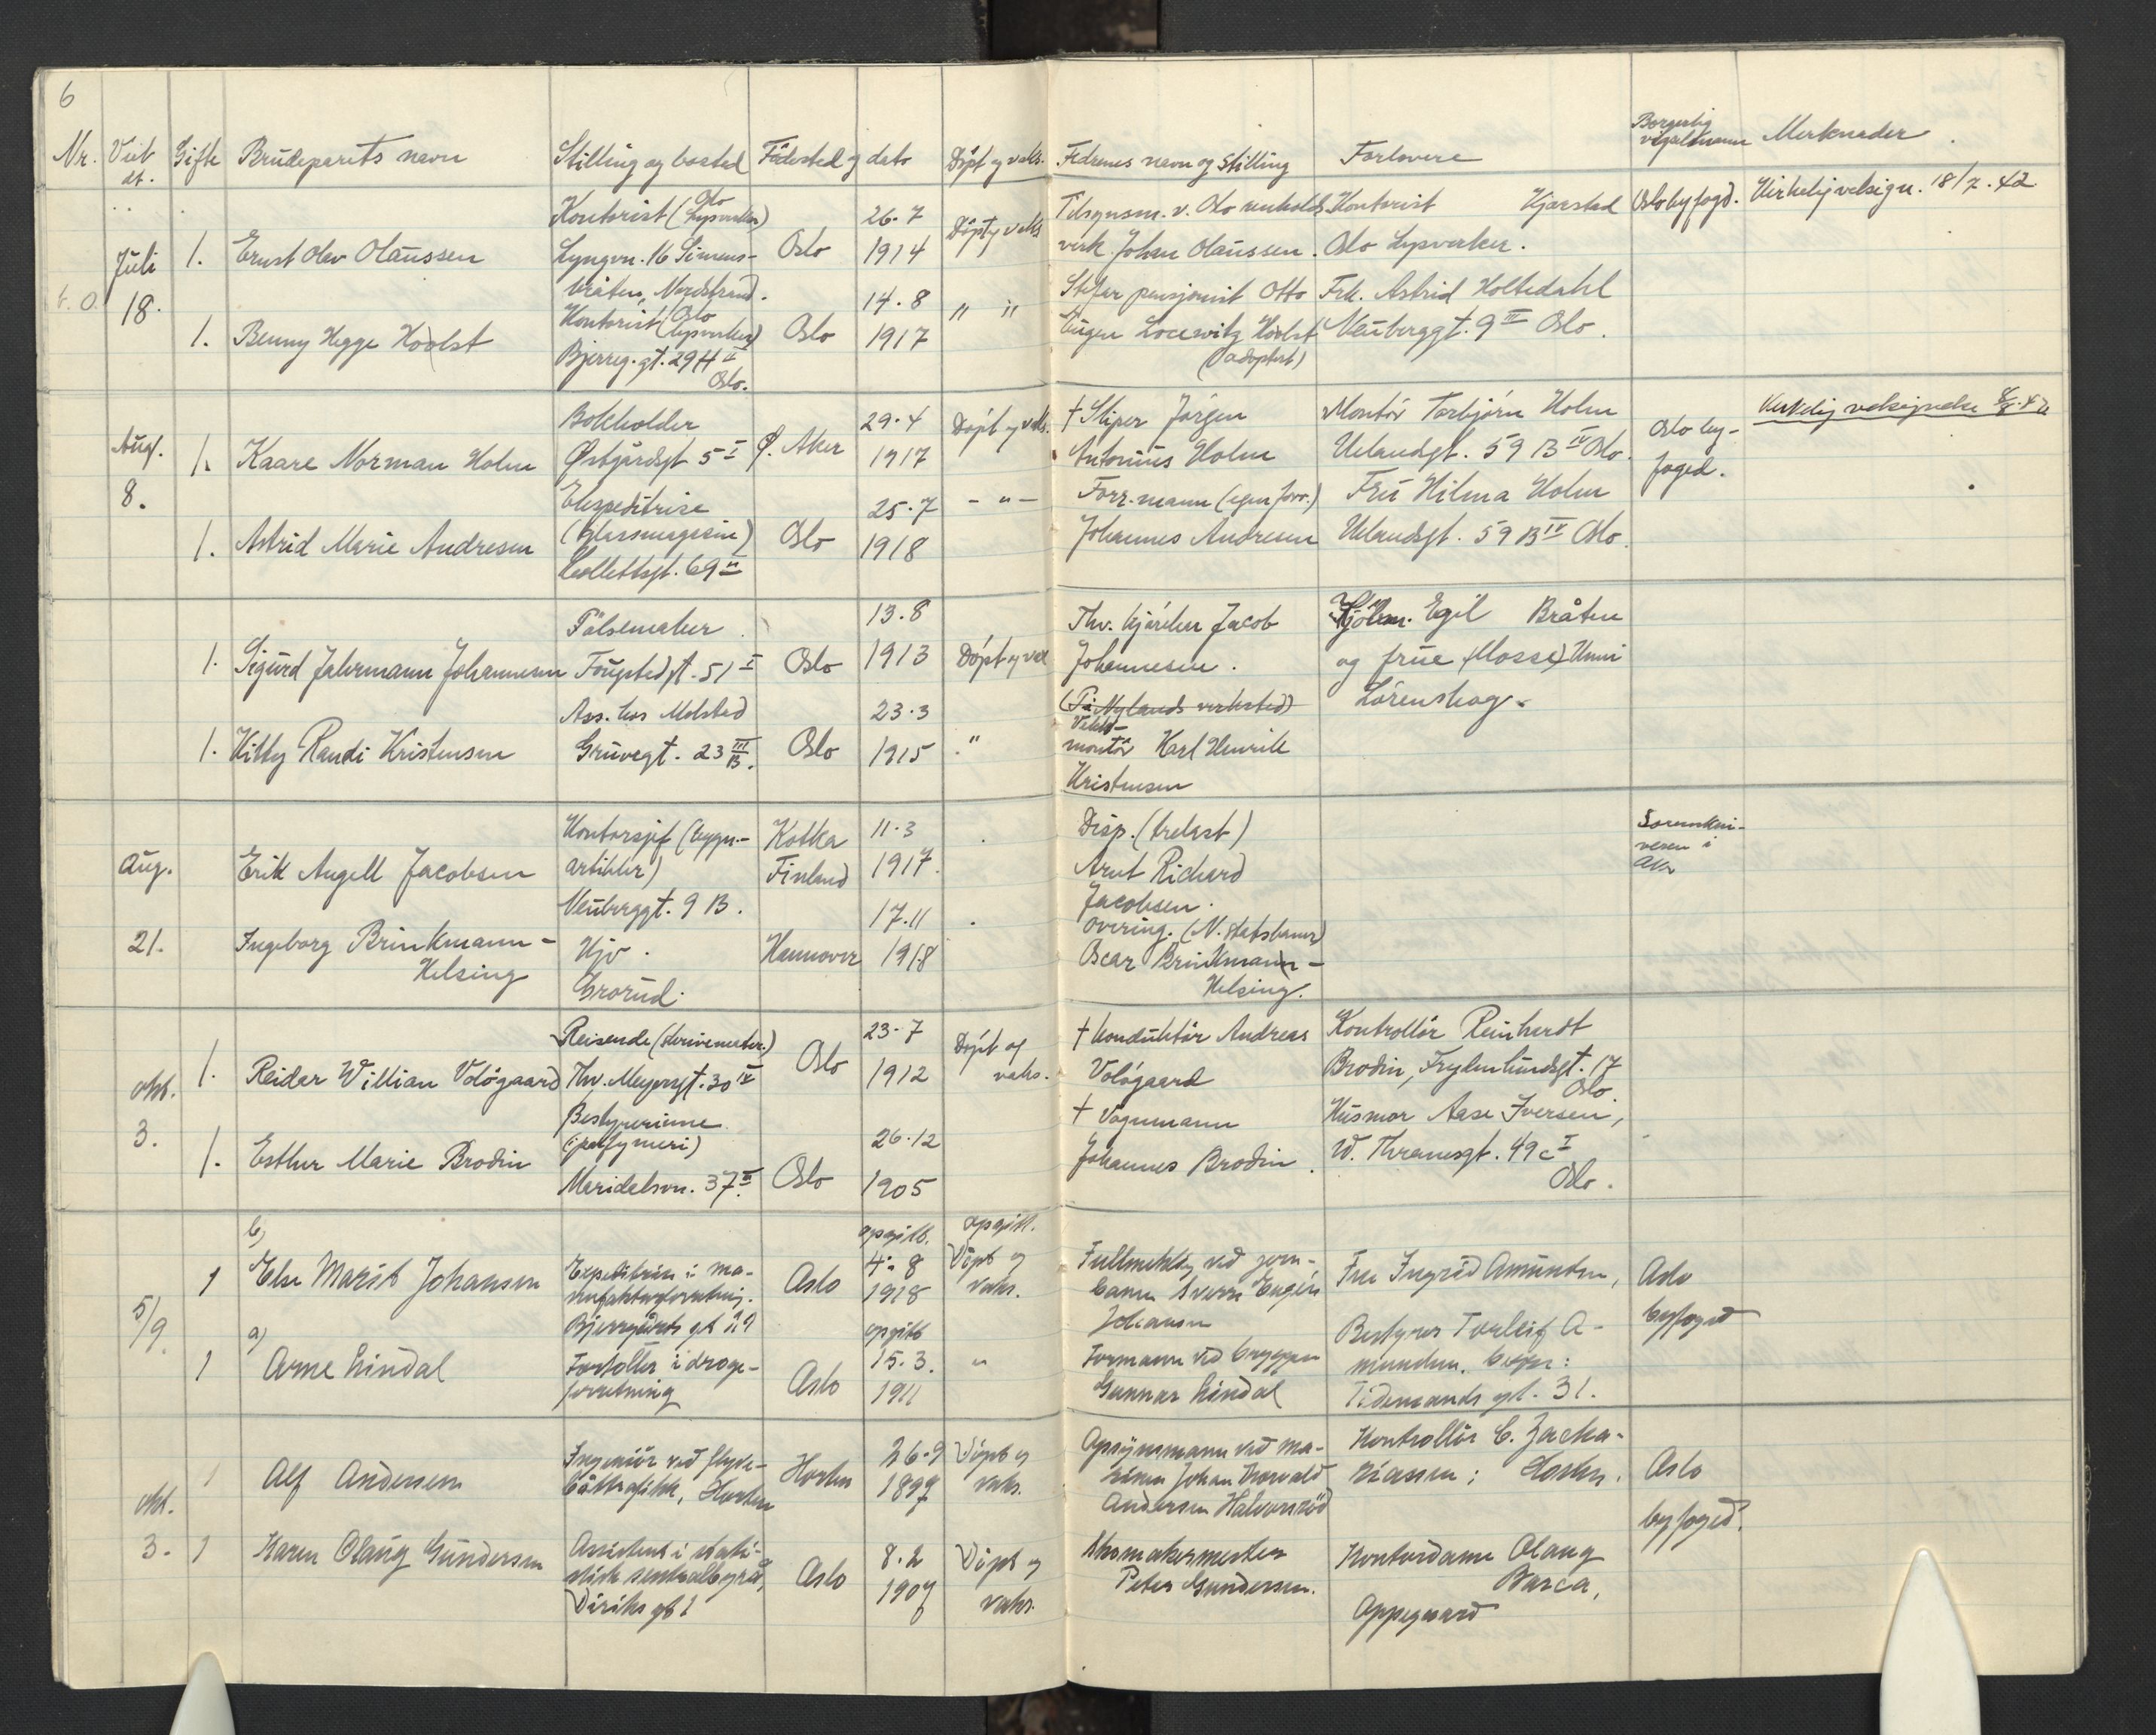 6
Nr. Viet dt. Gifte Brudeparets navn Stilling og bosted Fødested og dato Døpt og vaks. Fedrenes navn og Stilling Forlovere Borgerlig vigselsmann Merknader
Juli 18.
1. Ernst Olav Olaussen
Kontorist (Oslo Lysverker)
Lyngvn. 16 Simens-
bråten, Nordstrand.
Oslo 26.7 1914 Døpt og vaks
Tilsynsm. v. Oslo renholds
verk Johan Olaussen.
Kontorist Kjærstad
Oslo Lysverker.
Oslo byfogd. Kirkelig velsign. 18/7.42
1. Benny Hegge Hoolst
Kontorist (Oslo lysverker)
Bjerreg.gt. 29 H II
Oslo.
Oslo 14.8 1917 " "
Stefar pensjonist Otto
Eugen Hoolst
(adoptert)
Frk. Astrid Holtedahl
Neuberggt. 9 III Oslo.
Aug. 8.
1. Kaare Norman Holm
Bokholder
Østgårdsgt 5 I
Ø. Aker 29.4 1917 Døpt og vaks.
† Skiper Jørgen
Antonius Holm
Montør Torbjørn Holm
Uelandsgt. 59 B IV Oslo.
Oslo by-
foged.
Kirkelig velsignelse 8/8.42
1. Astrid Marie Andresen
Ekspeditrise
(glassmagasin)
Collettsgt. 69 II
Oslo 25.7 1918 - " -
Forr.mann (egen forr.)
Johannes Andresen
Fru Hilma Holm
Uelandsgt. 59 B IV Oslo.
1. Sigurd Jahrmann Johannesen
Pølsemaker
Fougstedgt. 51 I
Oslo 13.8 1913 Døpt og vak
Thv. kjører Jacob
Johannesen.
(På Nylands verksted)
Egil Bråten
og frue (Mosse) Unni
Lørenskog.
1. Kitty Randi Kristensen
Ass. hos Mølstad
Grüvegt. 23 III B.
Oslo 23.3 1915 "
montør Karl Henrik
Kristensen
Aug. 21.
Erik Angell Jacobsen
Kontorsjef (bygn.-
artikler)
Neuberggt. 9 B.
Kotka Finland 11.3 1917.
Disp. (trelast)
Arnt Richard
Jacobsen.
Sorenskri-
veren i
Aker
Ingeborg Brinkmann-
Helsing
Hjv.
Grorud.
Hannover 17.11 1918
Overing. (N. statsbaner)
Oscar Brinkmann-
Helsing.
okt. 3.
1. Reidar Willian Voløgaard
Reisende (skrivemater.)
Thv. Meyersgt. 30 IV
Oslo 23.7 1912 Døpt og vaks.
† Konduktør Andreas
Voløgaard
Kontrollør Reinhardt
Brodin, Frydenlundsgt. 17
Oslo.
1. Esther Marie Brodin
Bestyrerinne
(i parfymeri)
Maridalsvn. 37 III.
Oslo 26.12 1905
† Vognmann
Johannes Brodin.
Husmor Aase Iversen,
W. Thranesgt. 49 c I
Oslo.
5/9.
b)
1 Else Marit Johansen
Expeditrise i ma-
nufakturforretning.
Bjerregårds gt 29
Oslo opgitt. 4.8 1918 opgitt. Døpt og vaks.
Fullmektig ved jern-
banen Sverre Eugén
Johansen
Fru Ingrid Amundsen,
Oslo
byfoged
a)
1 Arne Lindal
Forvalter i droge-
forretning
Oslo opgitt 15.3. 1911 "
Formann ved bryggen
Gunnar Lindal
Bestyrer Torleif A-
mundsen. begge:
Tidemands gt. 31.
okt. 3.
1 Alf Andersen
Ingeniør ved flyve-
båtfabrikk, Horten
Horten 26.9 1897 Døpt og vaks.
Opsynsmann ved ma-
rinen Johan Thorvald
Andersen Halvorsrød
Kontrollør C. Zacha-
riassen; Horten.
Oslo
byfoged.
1 Karen Olaug Gundersen
Assistent i stati-
stisk sentralbyrå,
Diriks gt 1
Oslo 8.2 1907 Døpt og vaks.
Skomakermester
Peter Gundersen.
Kontordame Olaug
Barca,
Oppegaard